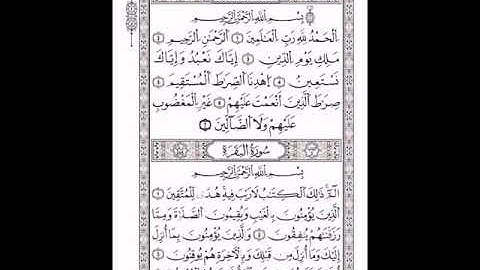 بِسْمِ اللَّهِ الرَّحْمَٰنِ الرَّحِيمِ
الْحَمْدُ لِلَّهِ رَبِّ الْعَٰلَمِينَ الرَّحْمَٰنِ الرَّحِيمِ
مَلِكِ يَوْمِ الدِّينِ إِيَّاكَ نَعْبُدُ وَإِيَّاكَ
نَسْتَعِينُ اِهْدِنَا الصِّرَٰطَ الْمُسْتَقِيمَ
صِرَٰطَ الَّذِينَ أَنْعَمْتَ عَلَيْهِمْ غَيْرِ الْمَغْضُوبِ
عَلَيْهِمْ وَلَا الضَّآلِّينَ
سُورَةُ الْبَقَرَةِ
بِسْمِ اللَّهِ الرَّحْمَٰنِ الرَّحِيمِ
الٓمٓ ذَٰلِكَ الْكِتَٰبُ لَا رَيْبَ فِيهِ هُدًى لِّلْمُتَّقِينَ
الَّذِينَ يُومِنُونَ بِالْغَيْبِ وَيُقِيمُونَ الصَّلَوٰةَ وَمِمَّا
رَزَقْنَٰهُمْ يُنفِقُونَ وَالَّذِينَ يُومِنُونَ بِمَا أُنزِلَ
إِلَيْكَ وَمَا أُنزِلَ مِن قَبْلِكَ وَبِالَاخِرَةِ هُمْ يُوقِنُونَ